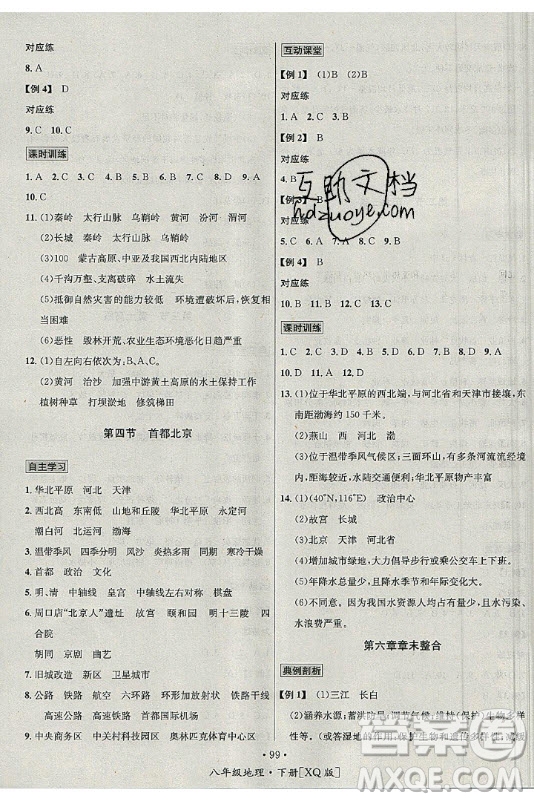 对应练
8. A
【例4】 D
对应练
9. C 10. C
课时训练
1. A 2. C 3. C 4. A 5. B 6. B 7. D 8. C 9. B
10. C
11. (1)秦岭 太行山脉 乌鞘岭 黄河 汾河 秦岭
(2)长城 太行山脉 秦岭 乌鞘岭
(3)100 蒙古高原、中亚及我国西北内陆地区
(4)千沟万壑、支离破碎 水土流失
(5)抵御自然灾害的能力较低 环境遭到破坏后,恢复相
当困难
(6)恶性 毁林开荒、农业生态环境恶化日趋严重
12. (1)自左向右依次为:B、A、C。
(2)黄河 沙尘 加强中游黄土高原的水土保持工作
植树种草 打坝淤地 修筑梯田
第四节 首都北京
自主学习
1. 华北平原 河北 天津
2. 西北高 东南低 山地和丘陵 永定河、拒马河
潮白河 北运河 海河
3. 温带季风 四季分明 风沙 炎热多雨 凉爽 寒冷干燥
4. 首都 政治 文化
5. 明清 中轴线 皇宫 中轴线对称 天安门广场
6. 周口店“北京人”遗址 故宫 颐和园 明十三陵 四
合院
7. 旧城改造 新区 卫星城市
8. 公路 铁路 航空 环形加放射状 铁路 航空 地铁
9. 中关村 中央商务区 金融街 奥林匹克公园
互动课堂
【例1】 (1)B (2)B
对应练
1. A 2. C 3. B
【例2】 B
对应练
4. B
对应练
10. B 11. B 12. C 13. C
课时训练
1. C 2. D 3. B 4. C 5. C 6. B 7. C 8. D 9. A
10. D 11. A 12. C
13. (1)位于华北平原的西北端,与河北省和天津市接壤,东
距渤海约150千米。
(2)燕山 西 永定河 北
(3)属于温带季风气候区;西、北两面环山,有多条河流流经
境内,水陆交通便利等。
14. (1)(40°N,116°E) 政治中心
(2)故宫 长城
(3)北京 天津 京津
(4)增加城市绿地,大力提倡节能减排,加大环保宣传力
度等。
(5)年降水总量少,降水季节变化大,用水量大等。
(6)不同意。因为我国水资源人均占有量少,且我国水资
源浪费和污染严重。
第六章章末整合
典例剖析
【例1】 (1)三江 长白
(2)涵养水源;蓄洪防旱;调节气候;维持(保护)生物的
·99·
八年级地理·下册[XQ版]
互助文档
hdzuoye.com
答案圈
MXQE.COM